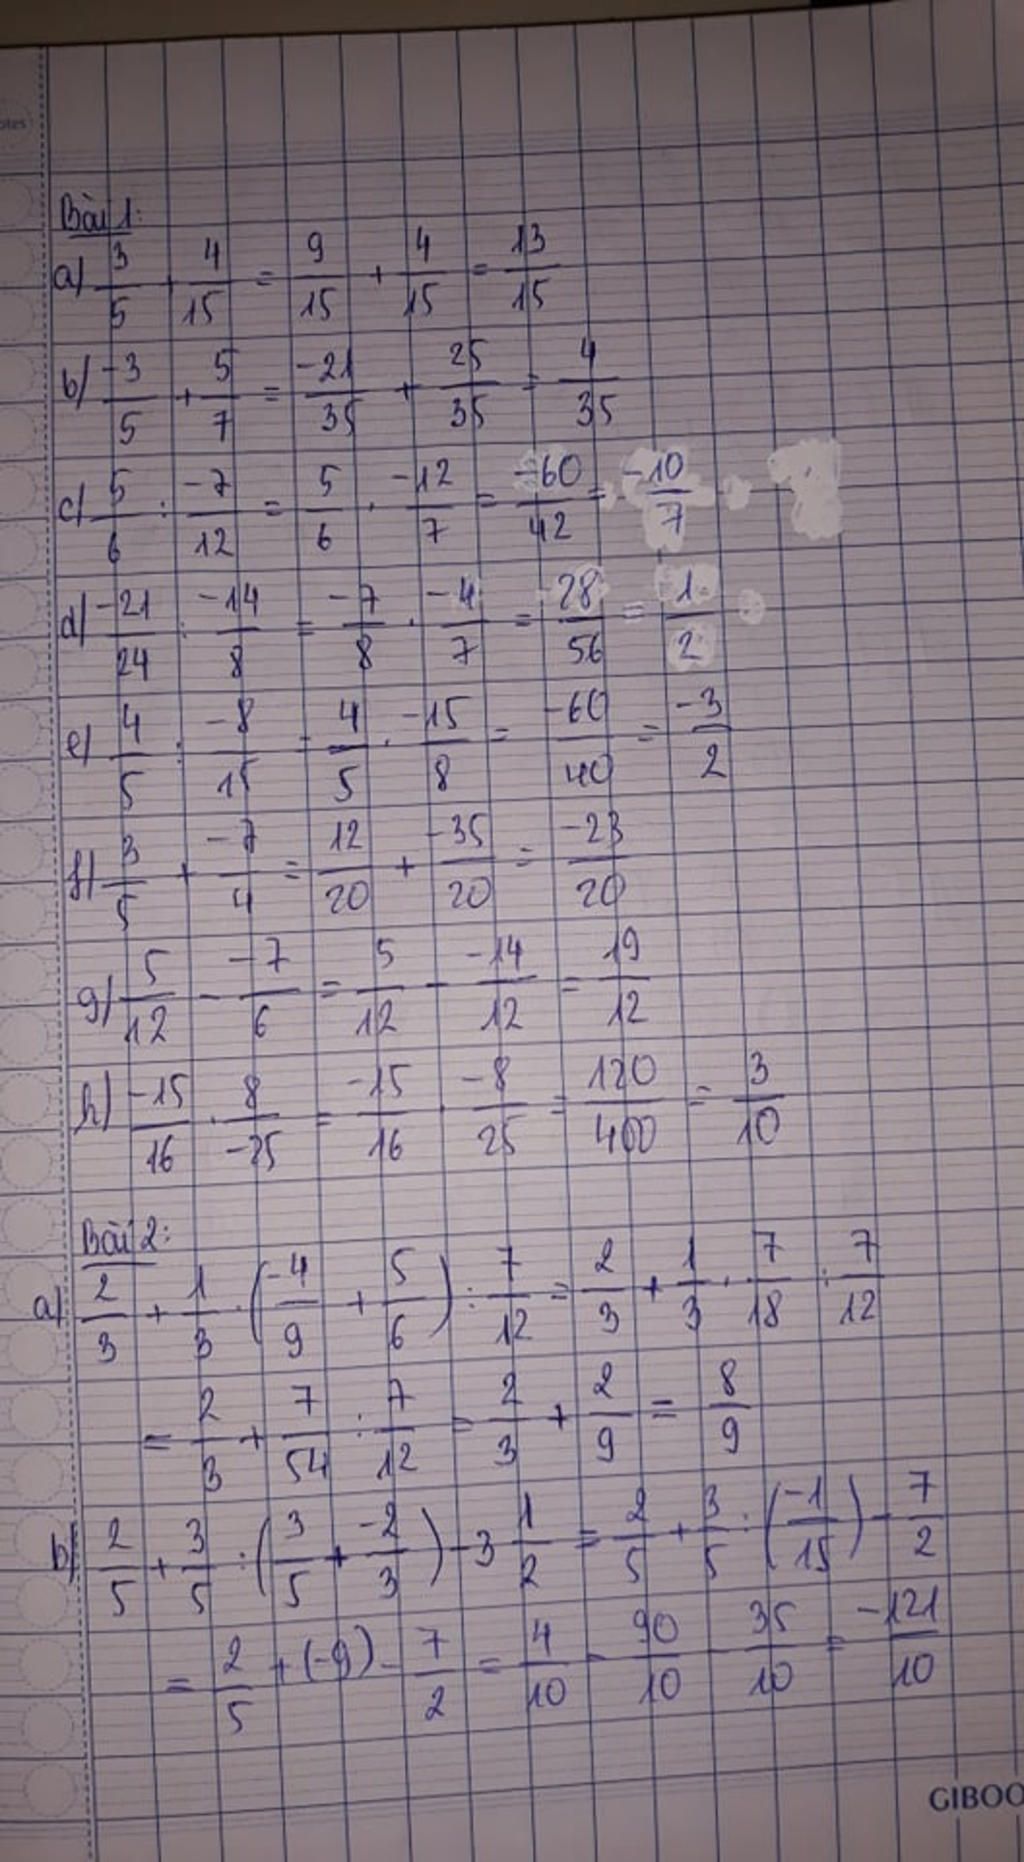 Bài 1:
a) 3/5 + 4/15 = 9/15 + 4/15 = 13/15
b) -3/5 + 5/7 = -21/35 + 25/35 = 4/35
c) 5/6 : -7/12 = 5/6 . -12/7 = -60/42 = -10/7
d) -21/24 : -14/8 = -7/8 . -4/7 = 28/56 = 1/2
e) 4/5 : -8/15 = 4/5 . -15/8 = -60/40 = -3/2
f) 3/5 + -7/4 = 12/20 + -35/20 = -23/20
g) 5/12 - -7/6 = 5/12 - -14/12 = 19/12
h) -15/16 . 8/-25 = -15/16 . -8/25 = 120/400 = 3/10
Bài 2:
a) 2/3 + 1/3 . (-4/9 + 5/6) : 7/12 = 2/3 + 1/3 . 7/18 : 7/12
= 2/3 + 7/54 : 7/12 = 2/3 + 2/9 = 8/9
b) 2/5 + 3/5 : (3/5 + -2/3) - 3 1/2 = 2/5 + 3/5 : (-1/15) - 7/2
= 2/5 + (-9) - 7/2 = 4/10 - 90/10 - 35/10 = -121/10
GIBOO